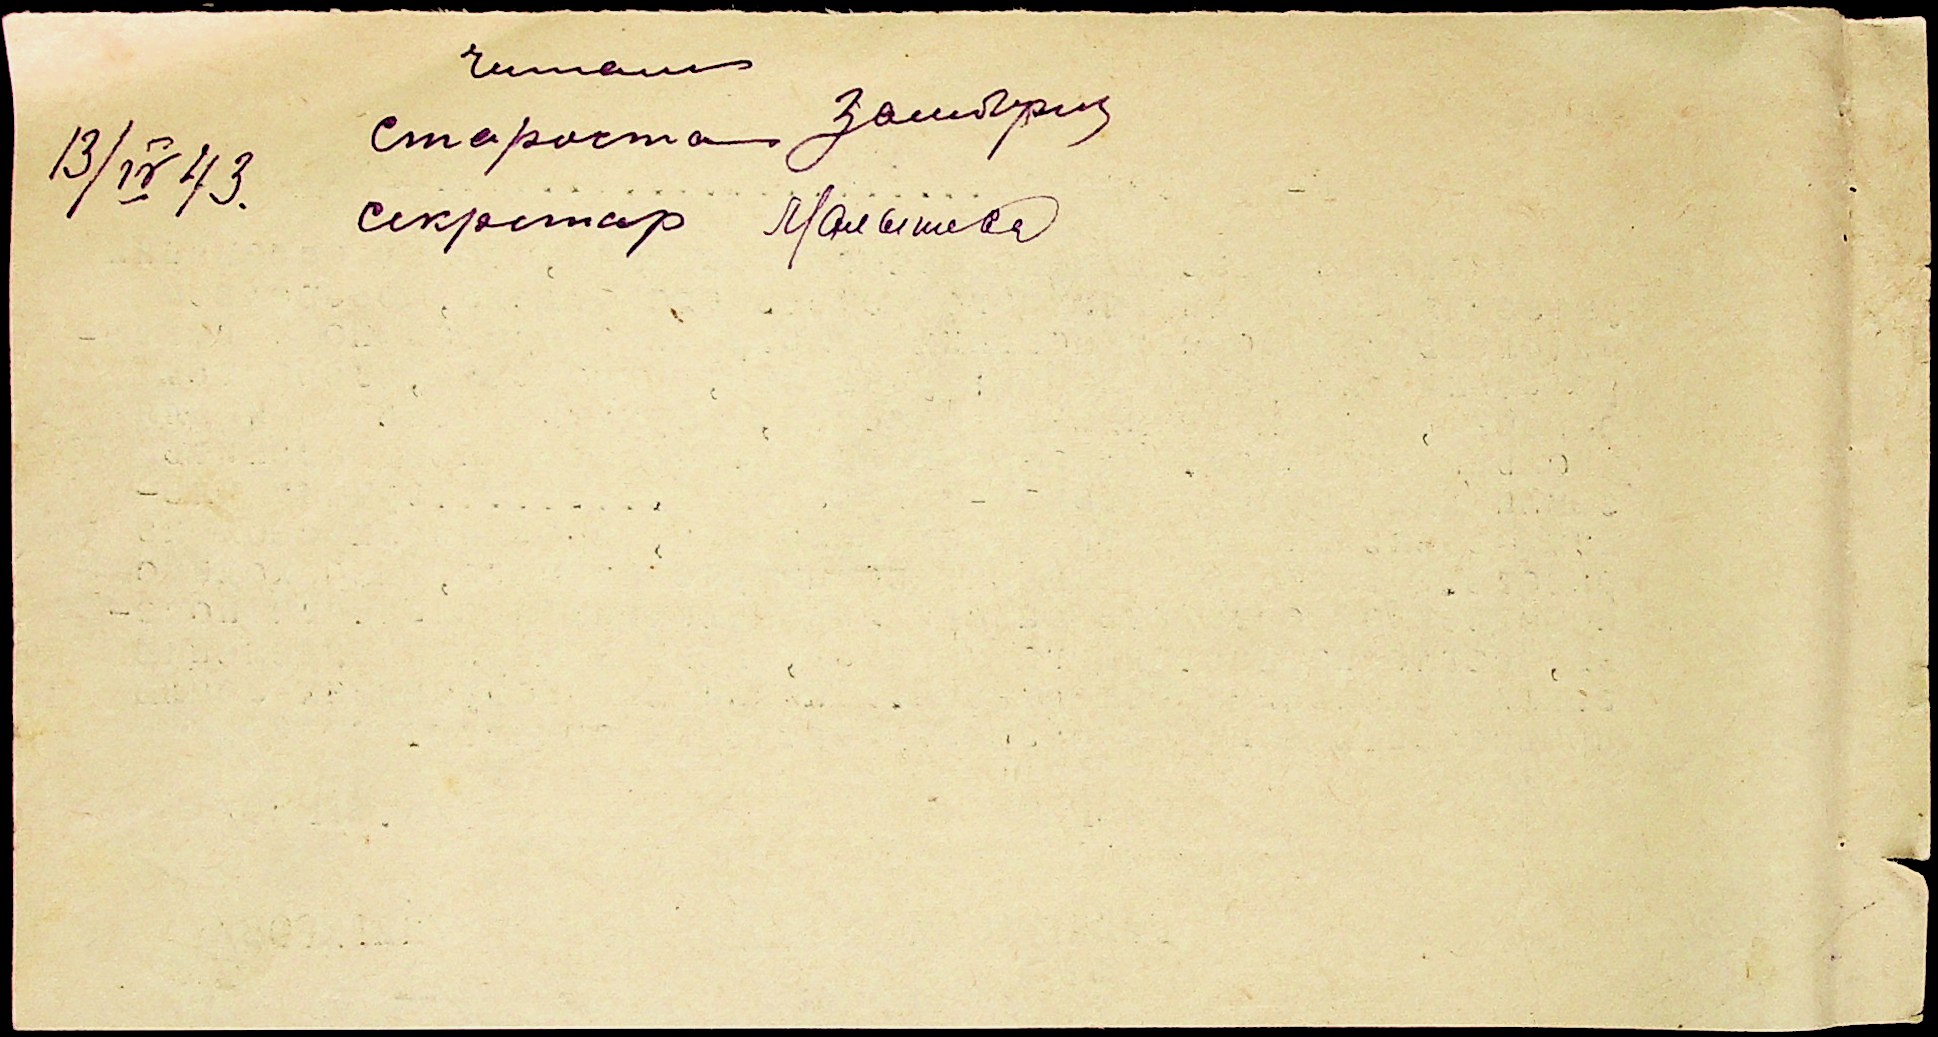 читали
староста
13/IV 43.
секретар Малышева